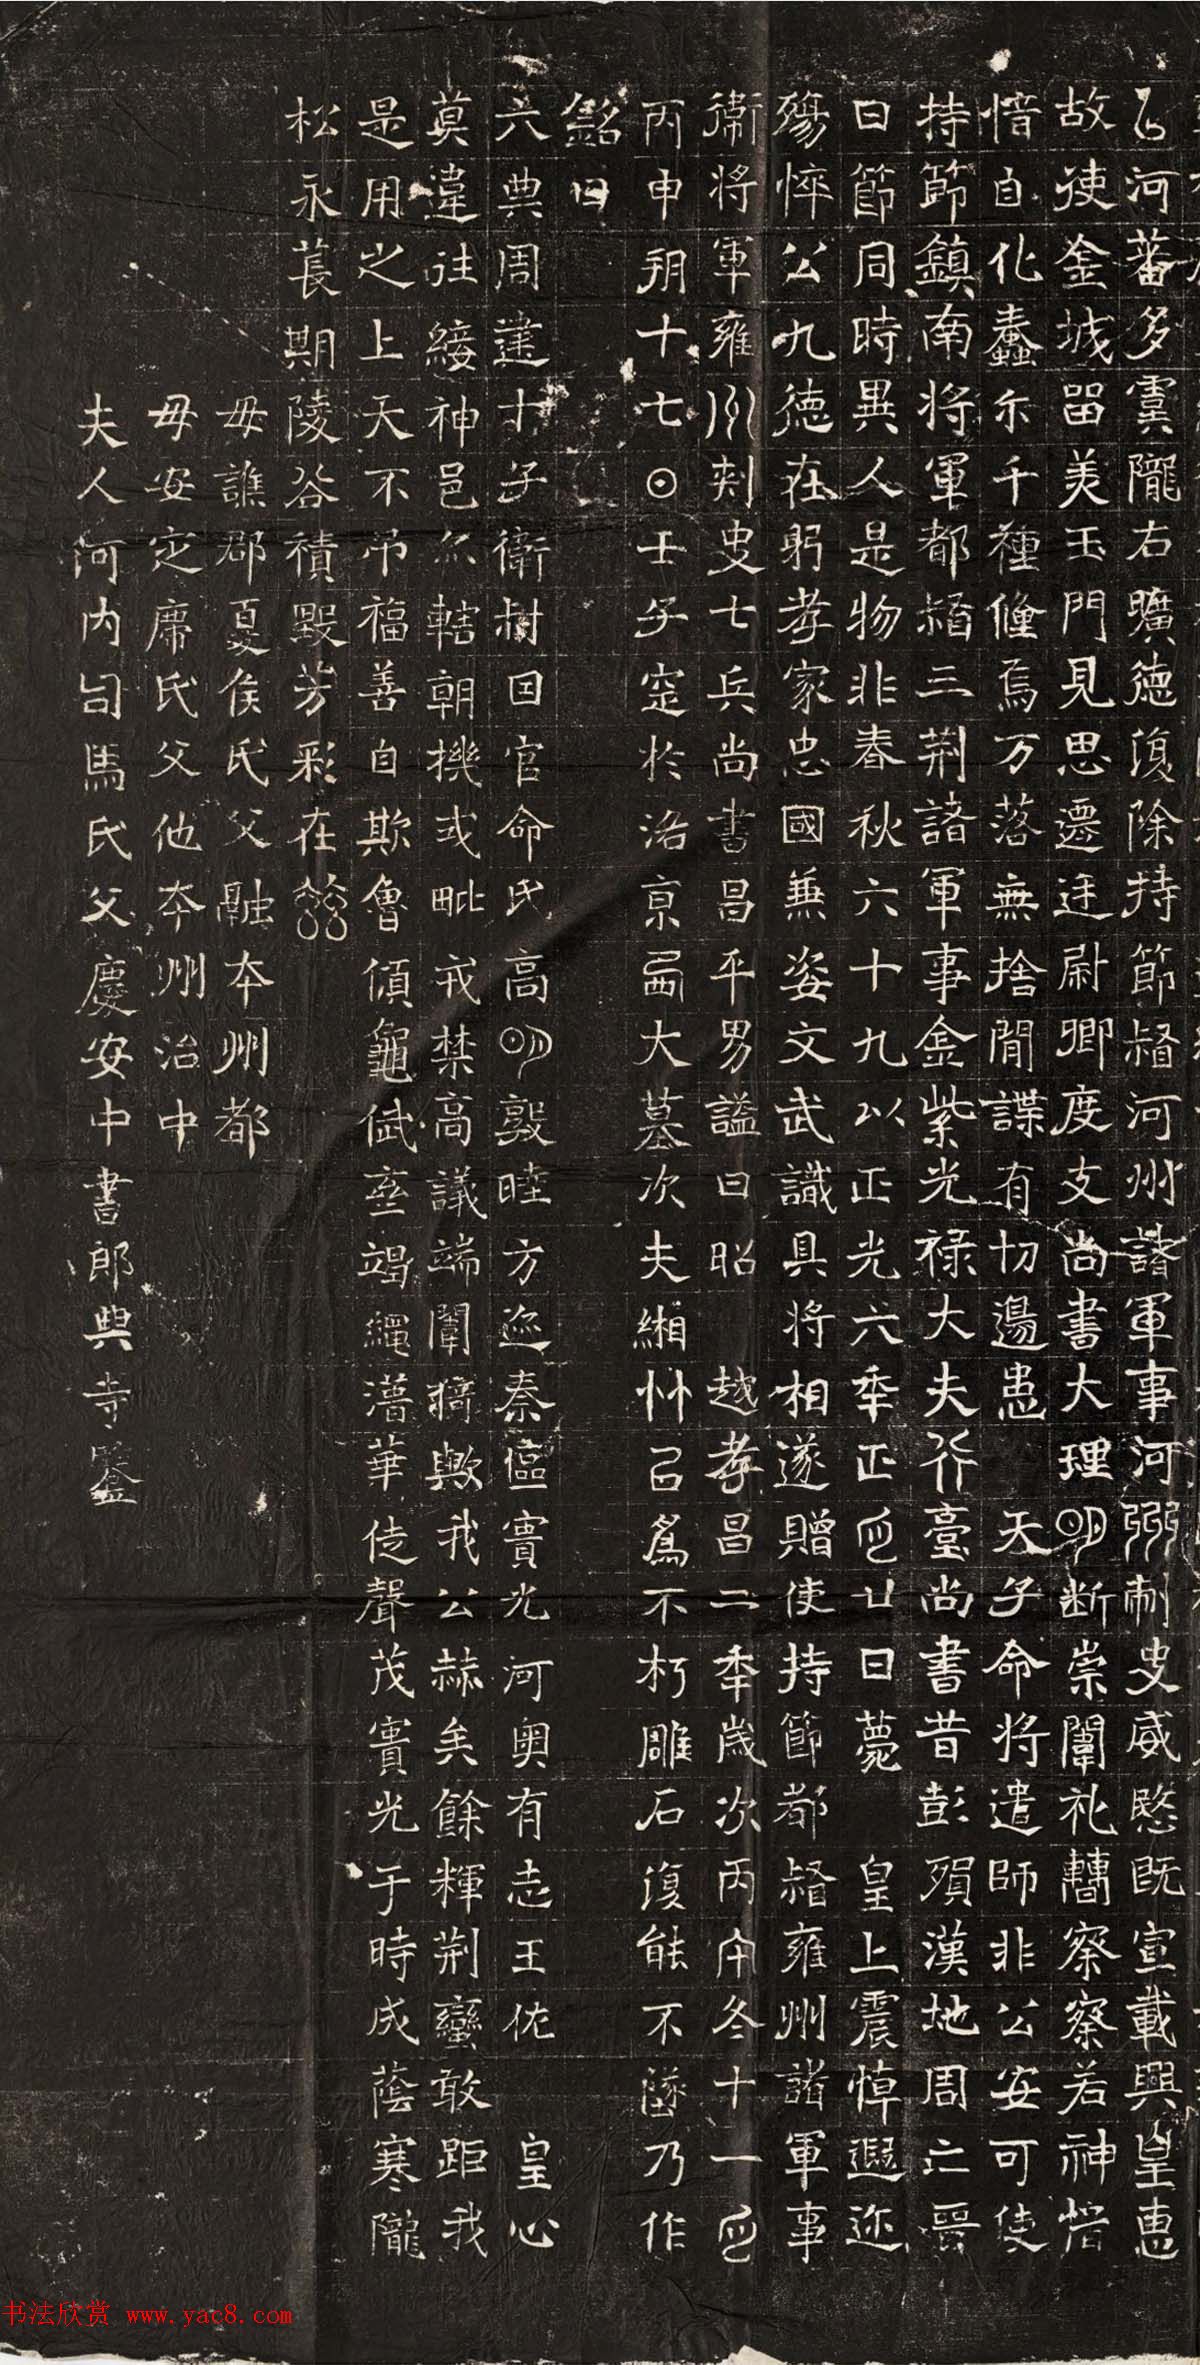 河蕃多虞隴右曠德復除持節督河州諸軍事河州刺史威愍既宣載興皇惠
故使金城留美玉門見思還迋尉卿度支尚書大理明断崇闈礼轉察察若神愔
愔自化蠢尒千種偅焉万落無捨閒諜有切邊患 天子命將遣師非公安可使
持節鎮南將軍都督三荆諸軍事金紫光禄大夫行臺尚書昔彭殞漢地周亡晉
日節同時異人是物非春秋六十九以正光六年正月廿日薨 皇上震悼遐迩
殤悴公九德在躬孝家忠國兼姿文武識具將相遂贈使持節都督雍州諸軍事
衛將軍雍州刾史七兵尚書昌平男謚曰昭 越孝昌二年歲次丙午冬十一月
丙申朔十七日壬子窆於洛京西大墓次夫緗竹已爲不朽雕石復能不墜乃作
銘曰
六典周建十子衛樹因官命氏高明敦睦方迩秦區實光河奧有志王佐 皇心
莫違往綏神邑尒轄朝機或毗戎禁高議端闈猗歟我公赫矣餘輝荆蠻敢距我
是用之上天不弔福善自欺魯傾龜弑垄竭繩潛華徒聲茂實光于時成蔭寒隴
松永萇期陵谷積毀芳彩在茲
母譙郡夏侯氏父融本州都
母安定席氏父他本州治中
夫人河内司馬氏父慶安中書郎典寺鑒
书法欣赏 www.yac8.com